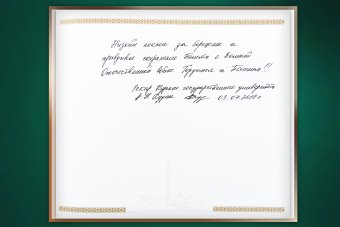 Низкий поклон за бережное и
правдивое сохранение Памяти о Великой
Отечественной Войне. Гордимся и Помним!!!
Ректор Курского государственного университета
А.Н. Худин 03.07.